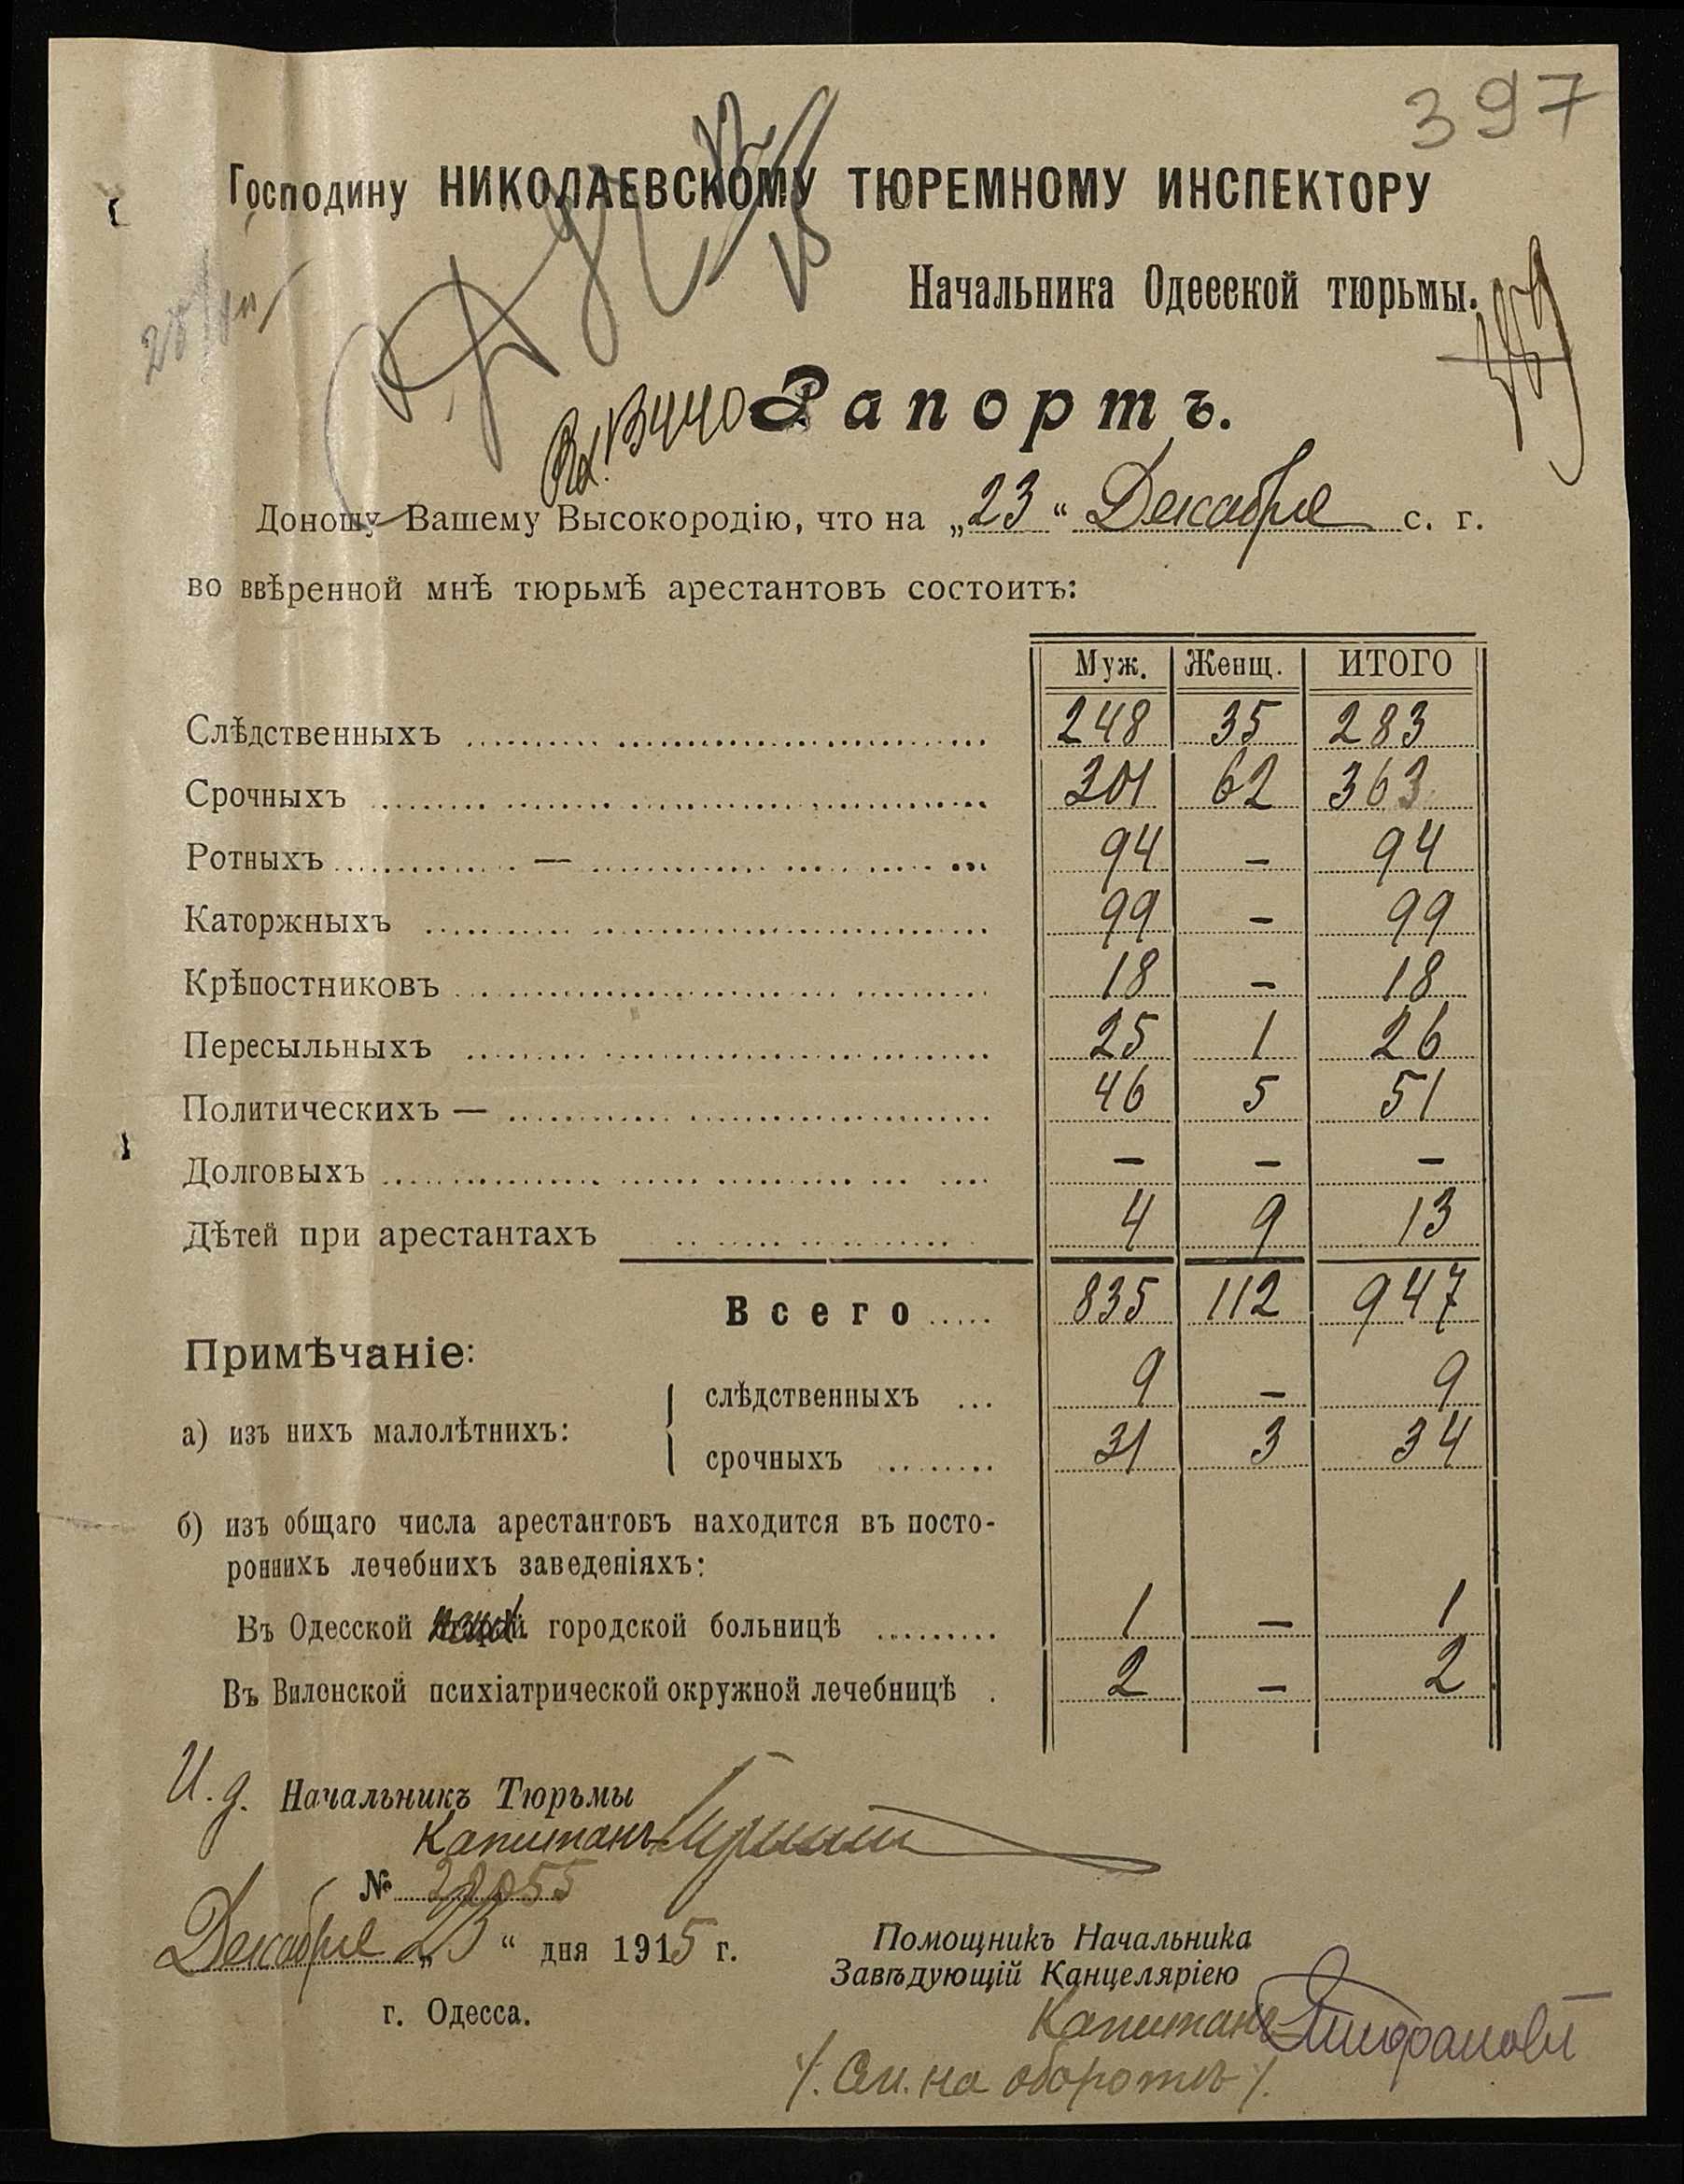 397
Господину НИКОЛАЕВСКОМУ ТЮРЕМНОМУ ИНСПЕКТОРУ
Начальника Одесской тюрьмы.
Рапортъ.
Доношу Вашему Высокородію, что на „23“ Декабря с. г.
во ввѣренной мнѣ тюрьмѣ арестантовъ состоитъ:
Муж. Женщ. ИТОГО
Слѣдственныхъ 248 35 283
Срочныхъ 301 62 363
Ротныхъ — 94 – 94
Каторжныхъ 99 – 99
Крѣпостниковъ 18 – 18
Пересыльныхъ 25 1 26
Политическихъ — 46 5 51
Долговыхъ – – –
Дѣтей при арестантахъ 4 9 13
Всего 835 112 947
Примѣчаніе:
а) изъ нихъ малолѣтнихъ:
слѣдственныхъ 9 – 9
срочныхъ 31 3 34
б) изъ общаго числа арестантовъ находится въ посто-
роннихъ лечебнихъ заведеніяхъ:
Въ Одесской городской больницѣ 1 – 1
Въ Виленской психіатрической окружной лечебницѣ 2 – 2
И. д. Начальникъ Тюрьмы
Капитанъ
№ 20055
Декабря „23“ дня 1915 г.
г. Одесса.
Помощникъ Начальника
Завѣдующій Канцеляріею
Капитанъ
/. См. на оборотѣ /.